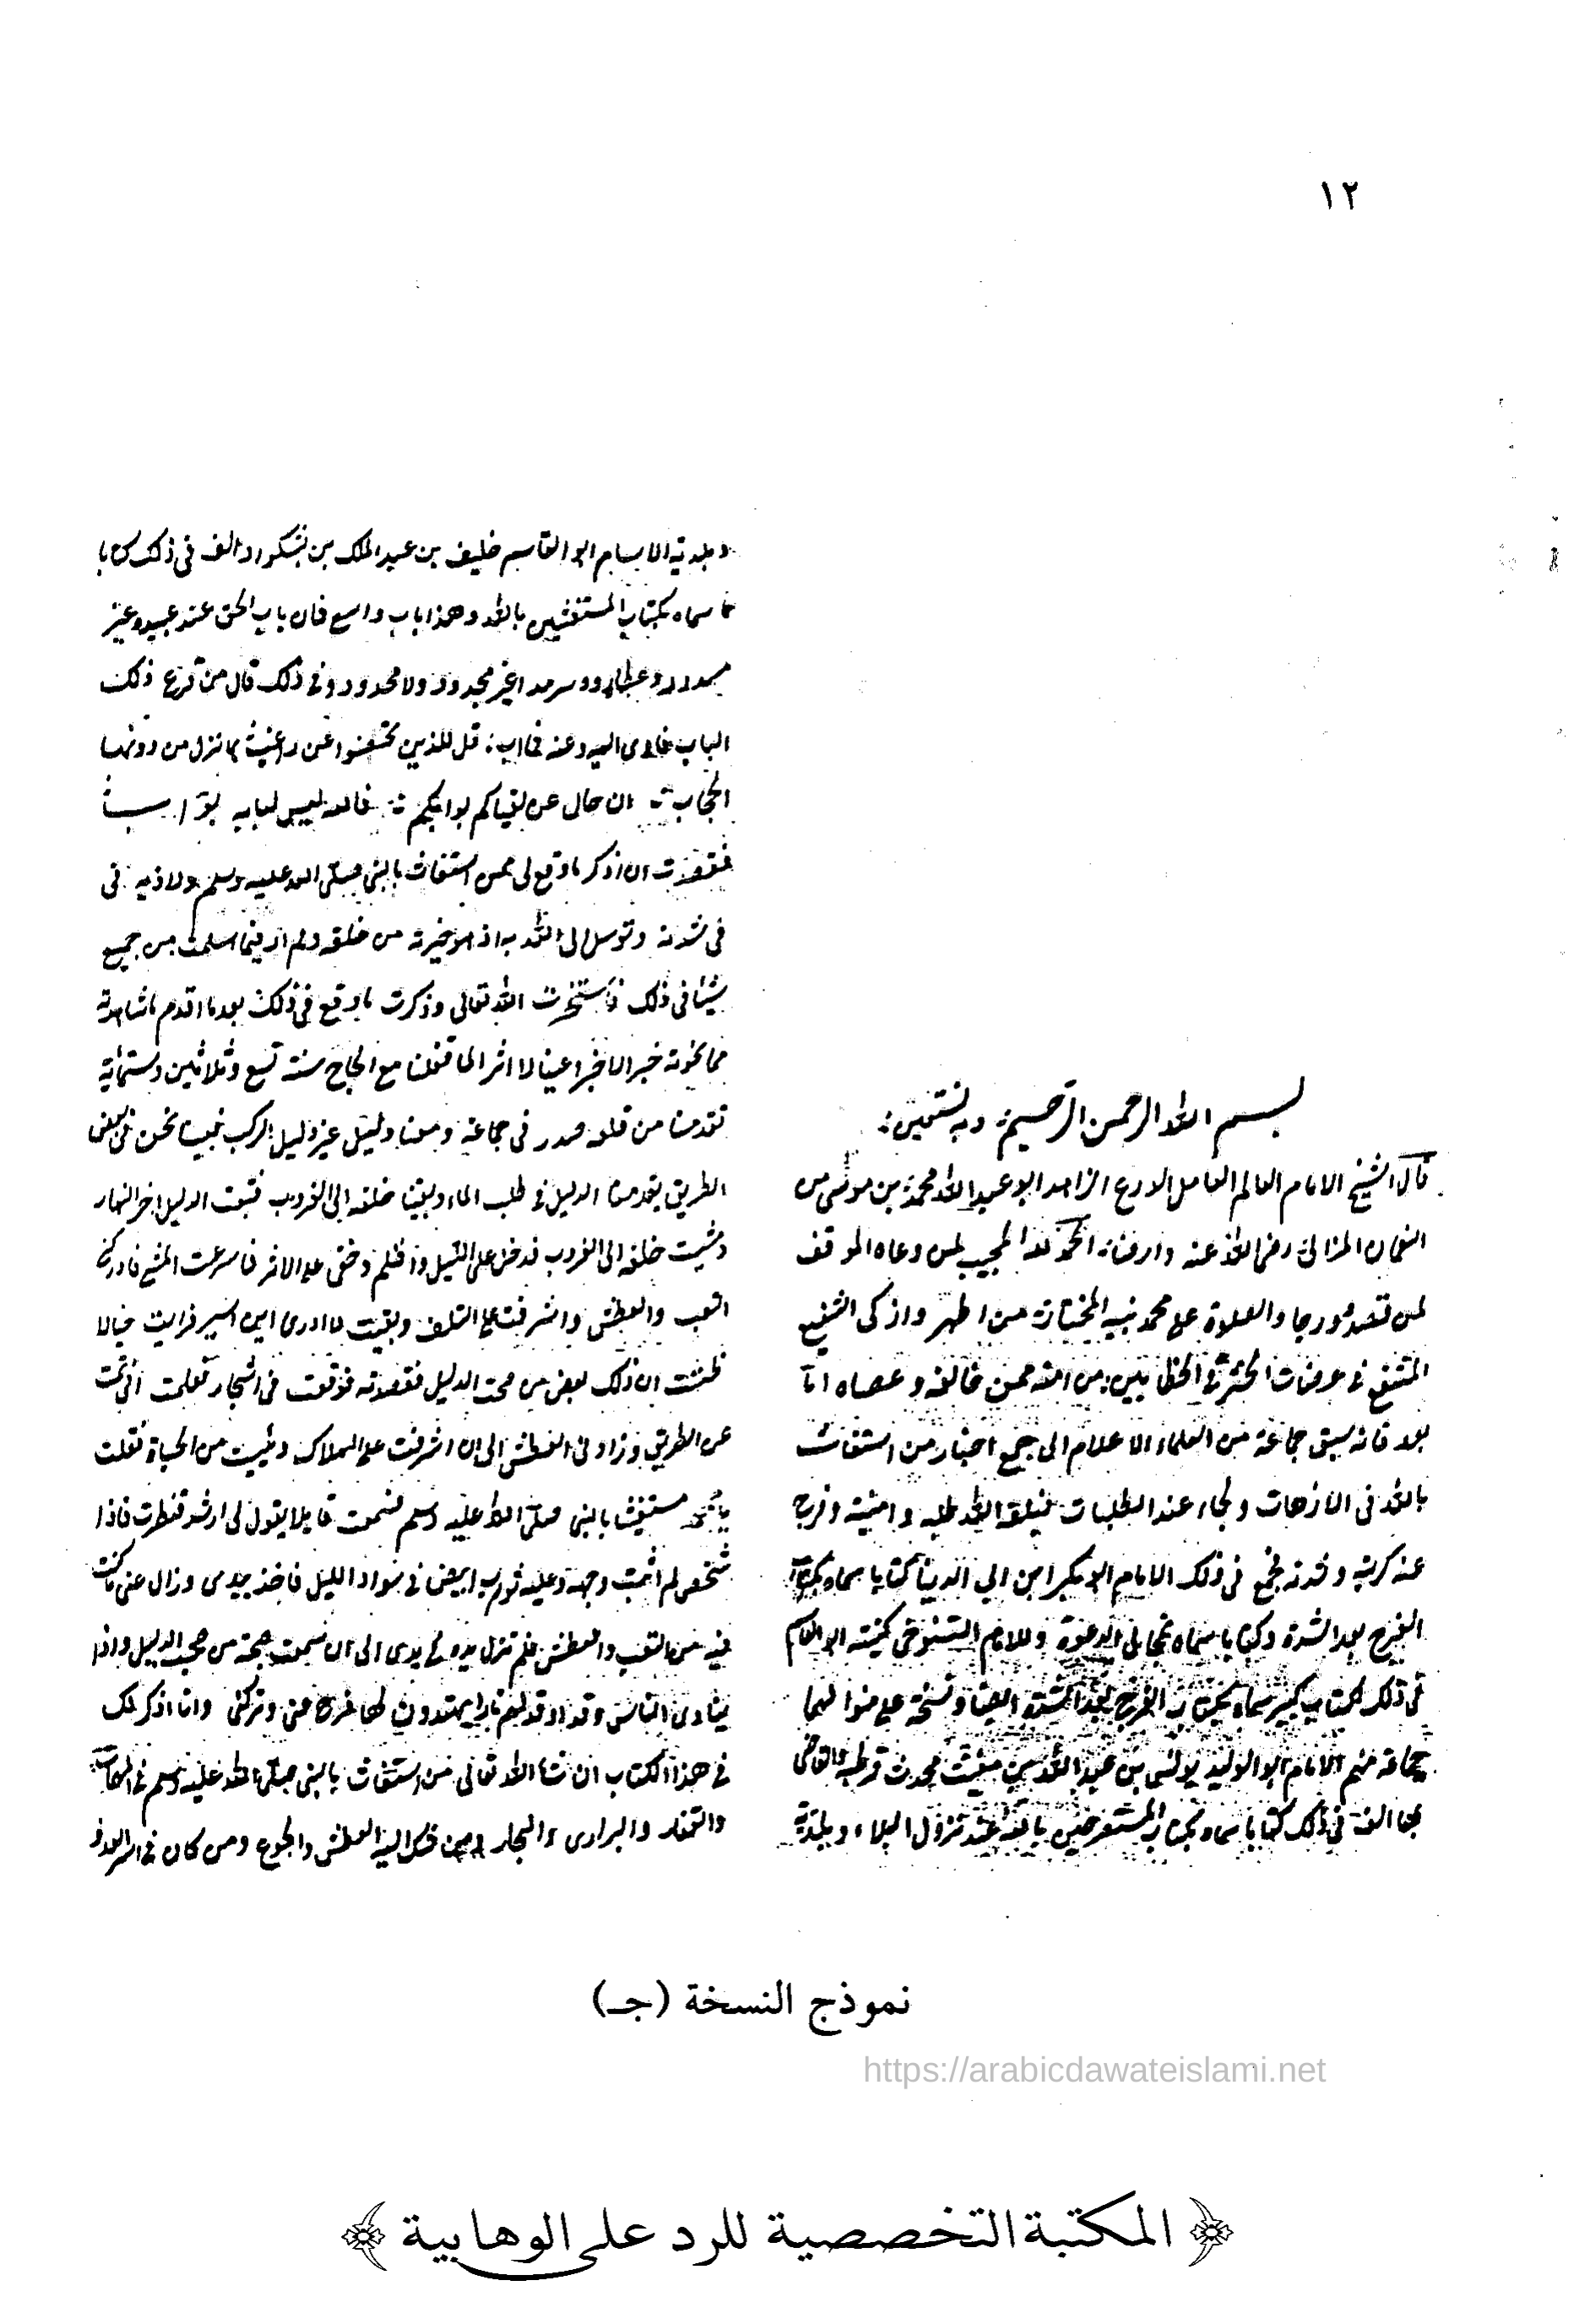 ١٢
بسم الله الرحمن الرحيم وبه نستعين
قال الشيخ الامام العالم العامل الورع الزاهد ابو عبد الله محمد بن موسى بن
النعمان المزالي رضى الله عنه وارضاه الحمد لله المجيب لمن دعاه الموقف
لمن قصده ورجا والصلوة على محمد نبيه المختار من اطهر وازكى الشفيع
المشفع فى عرصات من امته ممن خالفه وعصاه اما
بعد فانه سبق جماعة من العلماء الاعلام الى جمع اخبار من استغاث
بالله فى الازمات ولجاء عند الطلبات فبلغه الله طلبه وامنيته وفرج
عنه كربته وشدته فجمع فى ذلك الامام ابو بكر ابن ابي الدنيا كتابا سماه بكتاب
الفرج بعد الشدة وكتابا سماه مجابى الدعوة وللامام التنوخى كنيته ابو القاسم
فى ذلك كتاب كبير سماه بكتاب الفرج بعد الشدة ايضا ونسخة على منوالهما
جماعة منهم الامام ابو الوليد يونس بن عبد الله بن مغيث محدث قرطبة والقاضى
بها الف فى ذلك كتابا سماه بكتاب المستصرخين بالله عند نزول البلاء وبلدية
وبلدية الامام ابو القاسم خليف بن عبد الملك بن بشكوال والف فى ذلك كتابا
سماه بكتاب المستغيثين بالله وهذا باب واسع فان باب الحق عند عبيده غير
مسدود وعطاءه سرمدا غير مجدود ولا محدود وفى ذلك قال من قرع ذلك
الباب قل للذين عن من دونها
الحجاب ان حال عن لقياكم بوابكم فالله ليس لبابه بواب
فقصدت ان اذكر ما وقع لى ممن استغاث بالنبى صلى الله عليه وسلم ولاذ به فى
فى شدته وتوسل الى الله به اذ هو خيرته من خلقه ولم ار فيما من جمع
شيئا فى ذلك فاستخرت الله تعالى وذكرت ما وقع فى ذلك بعد ما اقدم ما شاهدته
مما خبر الاخبرا عينا لا اثر الما قفلنا مع الحاج سنة تسع وثلاثين وستمائة
تقدمنا من قلعه صدر فى جماعة ومعنا دليل غير دليل الركب فبينا نحن فى بعض
الطريق يقدمنا الدليل فى طلب الماء وبقينا خلفه الى الغروب فتبعت الدليل اخر النهار
ومشيت خلفه الى الغروب فدخل على الليل واظلم وخفى على الاثر فاسرعت المشى فادركنى
التعب والعطش واشرفت على التلف وبقيت لا ادرى اين اسير فرايت خيالا
ظننت ان ذلك بعض من صحب الدليل فقصدته فوقعت فى اشجار فعلمت انى تهت
عن الطريق وزاد فى العطش الى ان اشرفت على الهلاك ويئست من الحياة فقلت
مستغيثا بالنبى صلى الله عليه وسلم فسمعت قايلا يقول لى ارشد فنظرت فاذا
شخص لم اثبت وجهه وعليه ثوب ابيض فى سواد الليل فاخذ بيدى وزال عنى ما كنت
فيه من التعب والعطش فلم تزل يده فى يدى الى ان سمعت ضجة من صحب الدليل واذا
ينادى الناس وقد اوقد لهم نارا يهتدون لها فرج عنى وتركنى وانا اذكر لك
فى هذا الكتاب ان شا الله تعالى من استغاث بالنبى صلى الله عليه وسلم فى
والقفار والبرارى والبحار ومن شكى اليه العطش والجوع ومن كان فى اسر العدو
نموذج النسخة (جـ)
https://arabicdawateislami.net
﴿ المكتبة التخصصية للرد على الوهابية ﴾